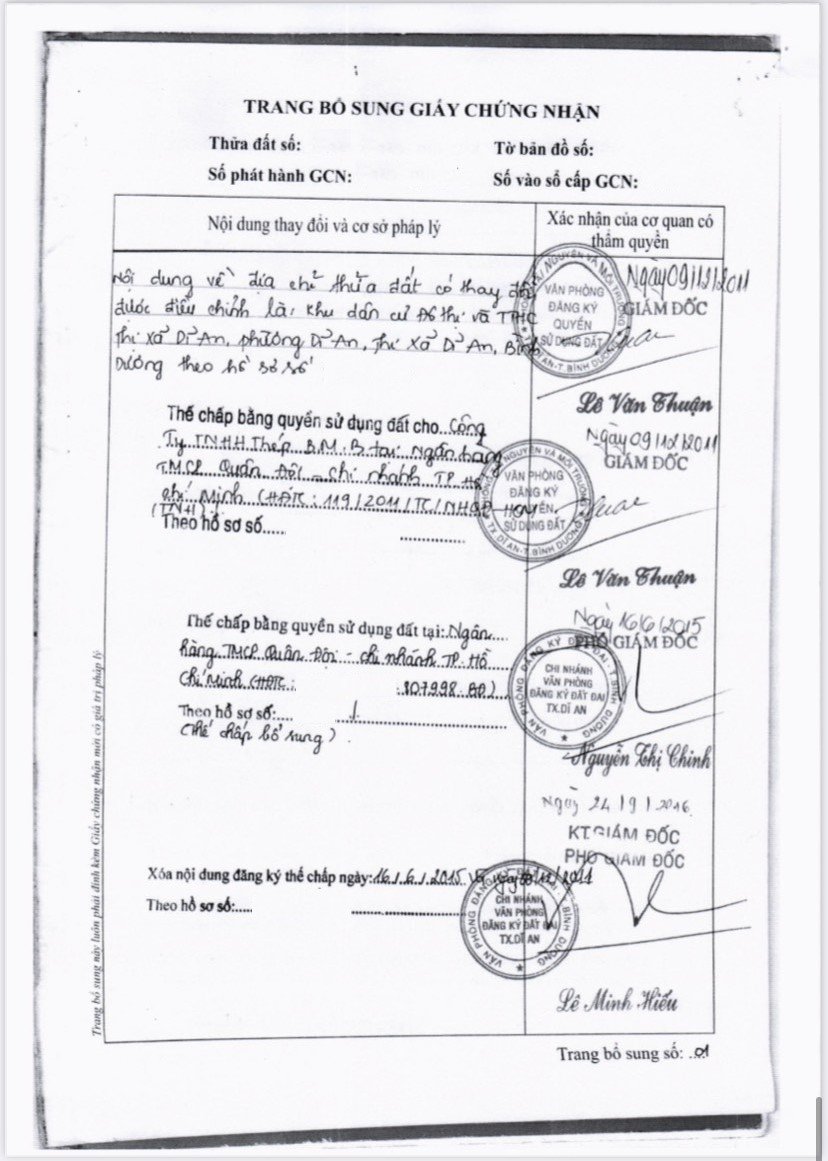 TRANG BỔ SUNG GIẤY CHỨNG NHẬN
Thửa đất số: Tờ bản đồ số:
Số phát hành GCN: Số vào sổ cấp GCN:
Nội dung thay đổi và cơ sở pháp lý
Xác nhận của cơ quan có
thẩm quyền
Nội dung về địa chỉ thửa đất có thay đổi
được điều chỉnh là: Khu dân cư Đô thị và TTHC
Thị Xã Dĩ An, phường Dĩ An, Thị Xã Dĩ An, Bình
Dương theo hồ sơ số
Ngày 09/12/2011
GIÁM ĐỐC
VĂN PHÒNG
ĐĂNG KÝ
QUYỀN
SỬ DỤNG ĐẤT
Lê Văn Thuận
Thế chấp bằng quyền sử dụng đất cho...Công
Ty TNHH Thép B.M.B tại Ngân hàng
TMCP Quân Đội - chi nhánh TP Hồ
chí Minh (HĐTC: 119/2011/TC/
(TNH)
Theo hồ sơ số.....
Ngày 09/12/2011
GIÁM ĐỐC
VĂN PHÒNG
ĐĂNG KÝ
QUYỀN
SỬ DỤNG ĐẤT
TX. DĨ AN-T. BÌNH DƯƠNG
Lê Văn Thuận
Thế chấp bằng quyền sử dụng đất tại:.Ngân
hàng TMCP Quân Đội - chi nhánh TP. Hồ
Chí Minh (HĐTC:
Theo hồ sơ số:....
(Thế chấp bổ sung)
Ngày 16/6/2015
PHÓ GIÁM ĐỐC
VĂN PHÒNG ĐĂNG KÝ ĐẤT ĐAI - T. BÌNH DƯƠNG
CHI NHÁNH
VĂN PHÒNG
ĐĂNG KÝ ĐẤT ĐAI
TX.DĨ AN
Nguyễn Thị Chinh
Xóa nội dung đăng ký thế chấp ngày:16/6/2015
Theo hồ sơ số:....
Ngày 24/9/2016
KT.GIÁM ĐỐC
PHÓ GIÁM ĐỐC
VĂN PHÒNG ĐĂNG KÝ ĐẤT ĐAI - T. BÌNH DƯƠNG
CHI NHÁNH
VĂN PHÒNG
ĐĂNG KÝ ĐẤT ĐAI
TX.DĨ AN
Lê Minh Hiếu
Trang bổ sung này luôn phải đính kèm Giấy chứng nhận mới có giá trị pháp lý
Trang bổ sung số: .01